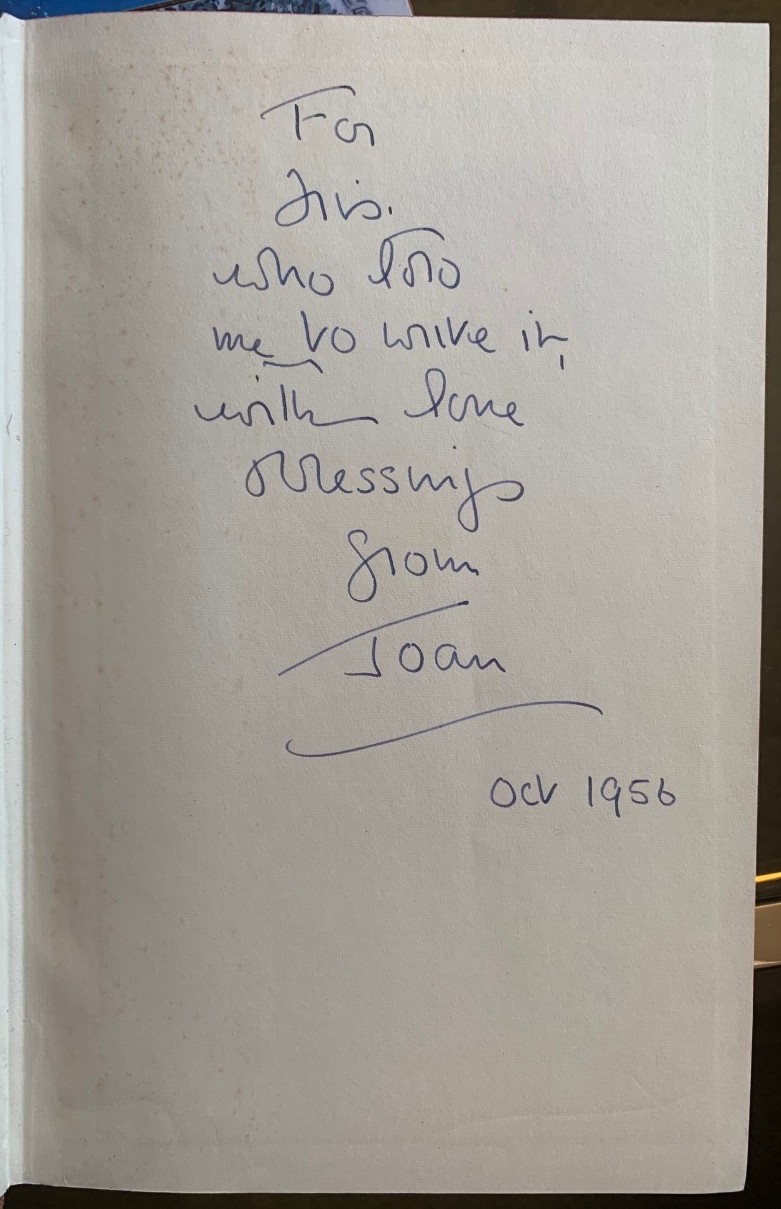 For
Iris.
who told
me to write it,
with love
& blessings
from
Joan
Oct 1956